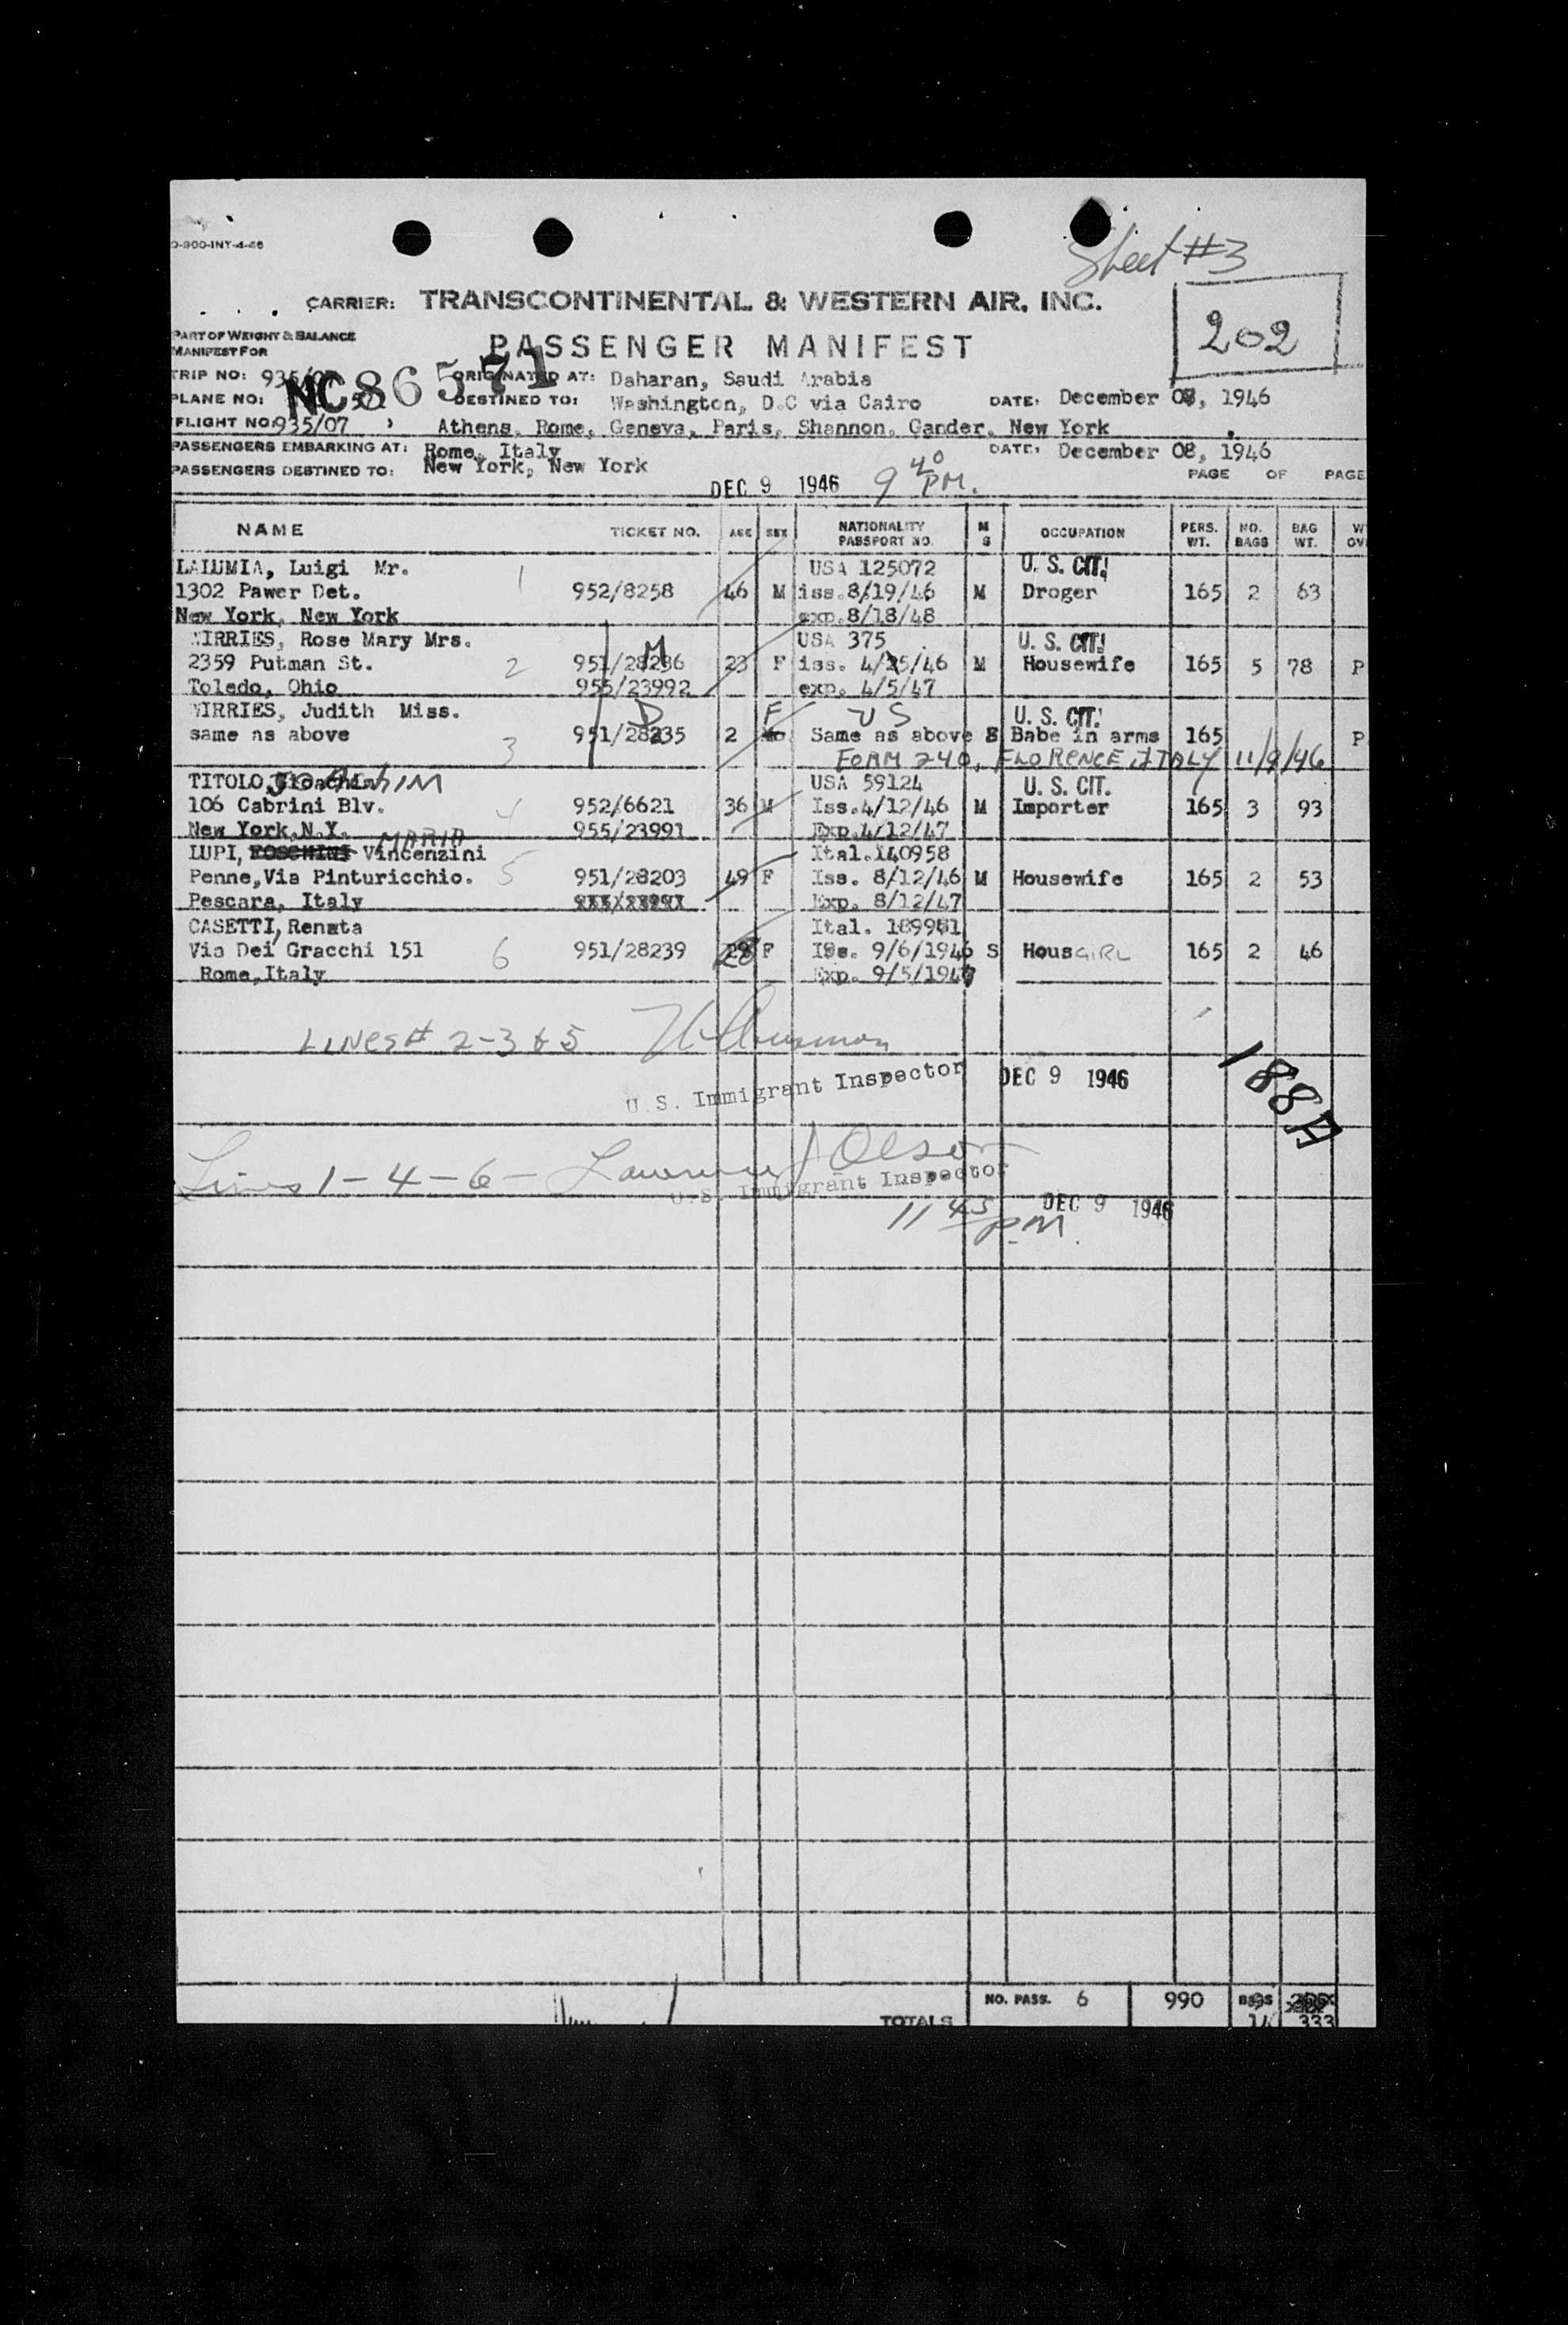 O-900-INT-4-46
Sheet #3
CARRIER: TRANSCONTINENTAL & WESTERN AIR, INC.
202
PART OF WEIGHT & BALANCE
MANIFEST FOR
PASSENGER MANIFEST
TRIP NO: 935/07 ORIGINATED AT: Daharan, Saudi Arabia
PLANE NO: NC 86571 DESTINED TO: Washington, D.C via Cairo DATE: December 08, 1946
FLIGHT NO: 935/07 Athens, Rome, Geneva, Paris, Shannon, Gander, New York
PASSENGERS EMBARKING AT: Rome, Italy DATE: December 08, 1946
PASSENGERS DESTINED TO: New York, New York PAGE OF PAGE
DEC 9 1946 9 40 PM.
NAME TICKET NO. AGE SEX NATIONALITY PASSPORT NO. M S OCCUPATION PERS. WT. NO. BAGS BAG WT.
LAIUMIA, Luigi Mr. 1 USA 125072 U. S. CIT.
1302 Pawer Det. 952/8258 46 M iss.8/19/46 M Droger 165 2 63
New York, New York exp.8/18/48
WIRRIES, Rose Mary Mrs. M USA 375 U. S. CIT.
2359 Putman St. 2 951/28236 23 F iss. 4/25/46 M Housewife 165 5 78 P
Toledo, Ohio 955/23992 exp. 4/5/47
WIRRIES, Judith Miss. D F US U. S. CIT.
same as above 3 951/28235 2 Same as above S Babe in arms 165 P
FORM 240, FLORENCE, ITALY 11/9/46
TITOLO, JOACHIM USA 59124 U. S. CIT.
106 Cabrini Blv. 4 952/6621 36 M Iss.4/12/46 M Importer 165 3 93
New York.N.Y. 955/23991 Exp.4/12/47
MARIA
LUPI, Vincenzini Ital.140958
Penne,Via Pinturicchio. 5 951/28203 49 F Iss. 8/12/46 M Housewife 165 2 53
Pescara, Italy Exp. 8/12/47
CASETTI, Renata Ital. 189981
Via Dei Gracchi 151 6 951/28239 28 F Iss. 9/6/1946 S HousGIRL 165 2 46
Rome,Italy Exp. 9/5/1947
LINES# 2-3 & 5
U.S. Immigrant Inspector DEC 9 1946
188A
Lines 1-4-6- Lawrence J Olson
U.S. Immigrant Inspector
11 45 PM. DEC 9 1946
NO. PASS. 6 990 BAGS
TOTALS 14 333